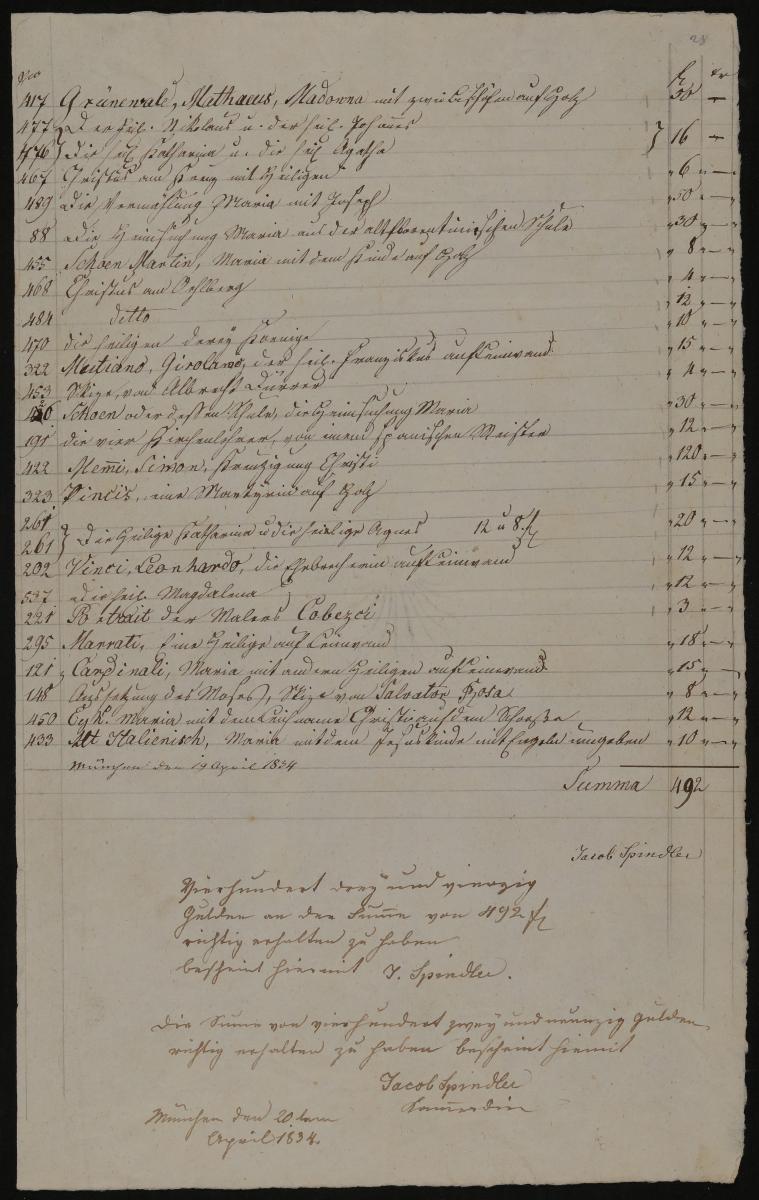 28
Nro fl kr
417 Grünewald, Mathaeus, Madonna mit zwei Bischöfen auf Holz 50 —
477 Der heil. Nikolaus u. der heil. Johannes
476 } die heil Katharina u. die heil Agatha } 16 —
467 Christus am Kreuz mit Heiligen " 6 " — "
489 die Vermählung Maria mit Joseph " 50 " — "
88 die Heimsuchung Maria aus der altflorentinischen Schule " 30 " — "
455 Schoen Martin, Maria mit dem Kinde auf Holz " 8 " — "
468 Christus am Oehlberg " 4 " — "
484 detto " 12 " — "
470 die heiligen drey Koenige " 10 " — "
322 Girolamo, der heil. Franziskus auf Leinwand " 15 " — "
453 Skize, von Albrecht Dürrer " 4 " — "
Schoen oder dessen Schule, die Heimsuchung Maria " 30 " — "
191 die vier Kirchenlehrer, von einem spanischen Meister " 12 " — "
422 Memi, Simon, Kreuzigung Christi " 120 " — "
323 Vincis, eine Martyrin auf Holz " 15 " — "
261
261 } Die Heilige Katharina u die heilige Agnes 12 u 8 fl " 20 " — "
202 Vinci, Leonhardo, die Ehebrecherin auf Leinwand " 12 " — "
537 die heil. Magdalena " 12 " — "
221 Portrait der Malers " 3 " — "
295 Marrati, Eine Heilige auf Leinwand " 18 " — "
121 Cardinali, Maria mit andern Heiligen auf Leinewand " 15 " — "
148 Aussetzung des Moses, Skize von Salvator Rosa " 8 " — "
450 Eyk. Maria mit dem Leichname Christi auf dem Schoosse " 12 " — "
433 Alt Italienisch, Maria mit dem Jesuskinde mit Engeln umgeben " 10 " — "
München den 19 April 1834
Summa 492
Jacob Spindler
Vierhundert drey und vierzig
Gulden an der Summe von 492 fl
richtig erhalten zu haben
bescheint hiermit J. Spindler.
Die Sume von vierhundert zwey und neunzig Gulden
richtig erhalten zu haben bescheint hiemit
Jacob Spindler
München den 20 ten
April 1834.